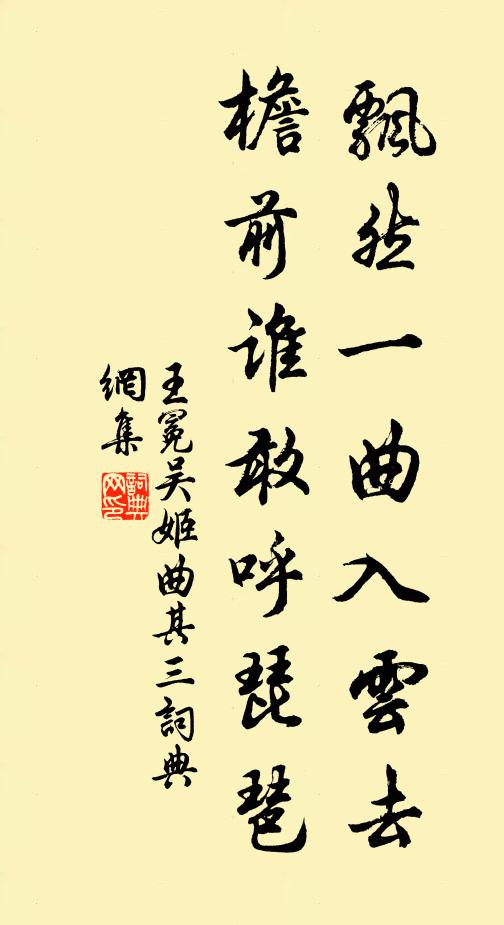 飄然一曲入雲去
檐前誰敢呼琵琶
王冕吴姬曲其三詞典
網集
詞典
网印